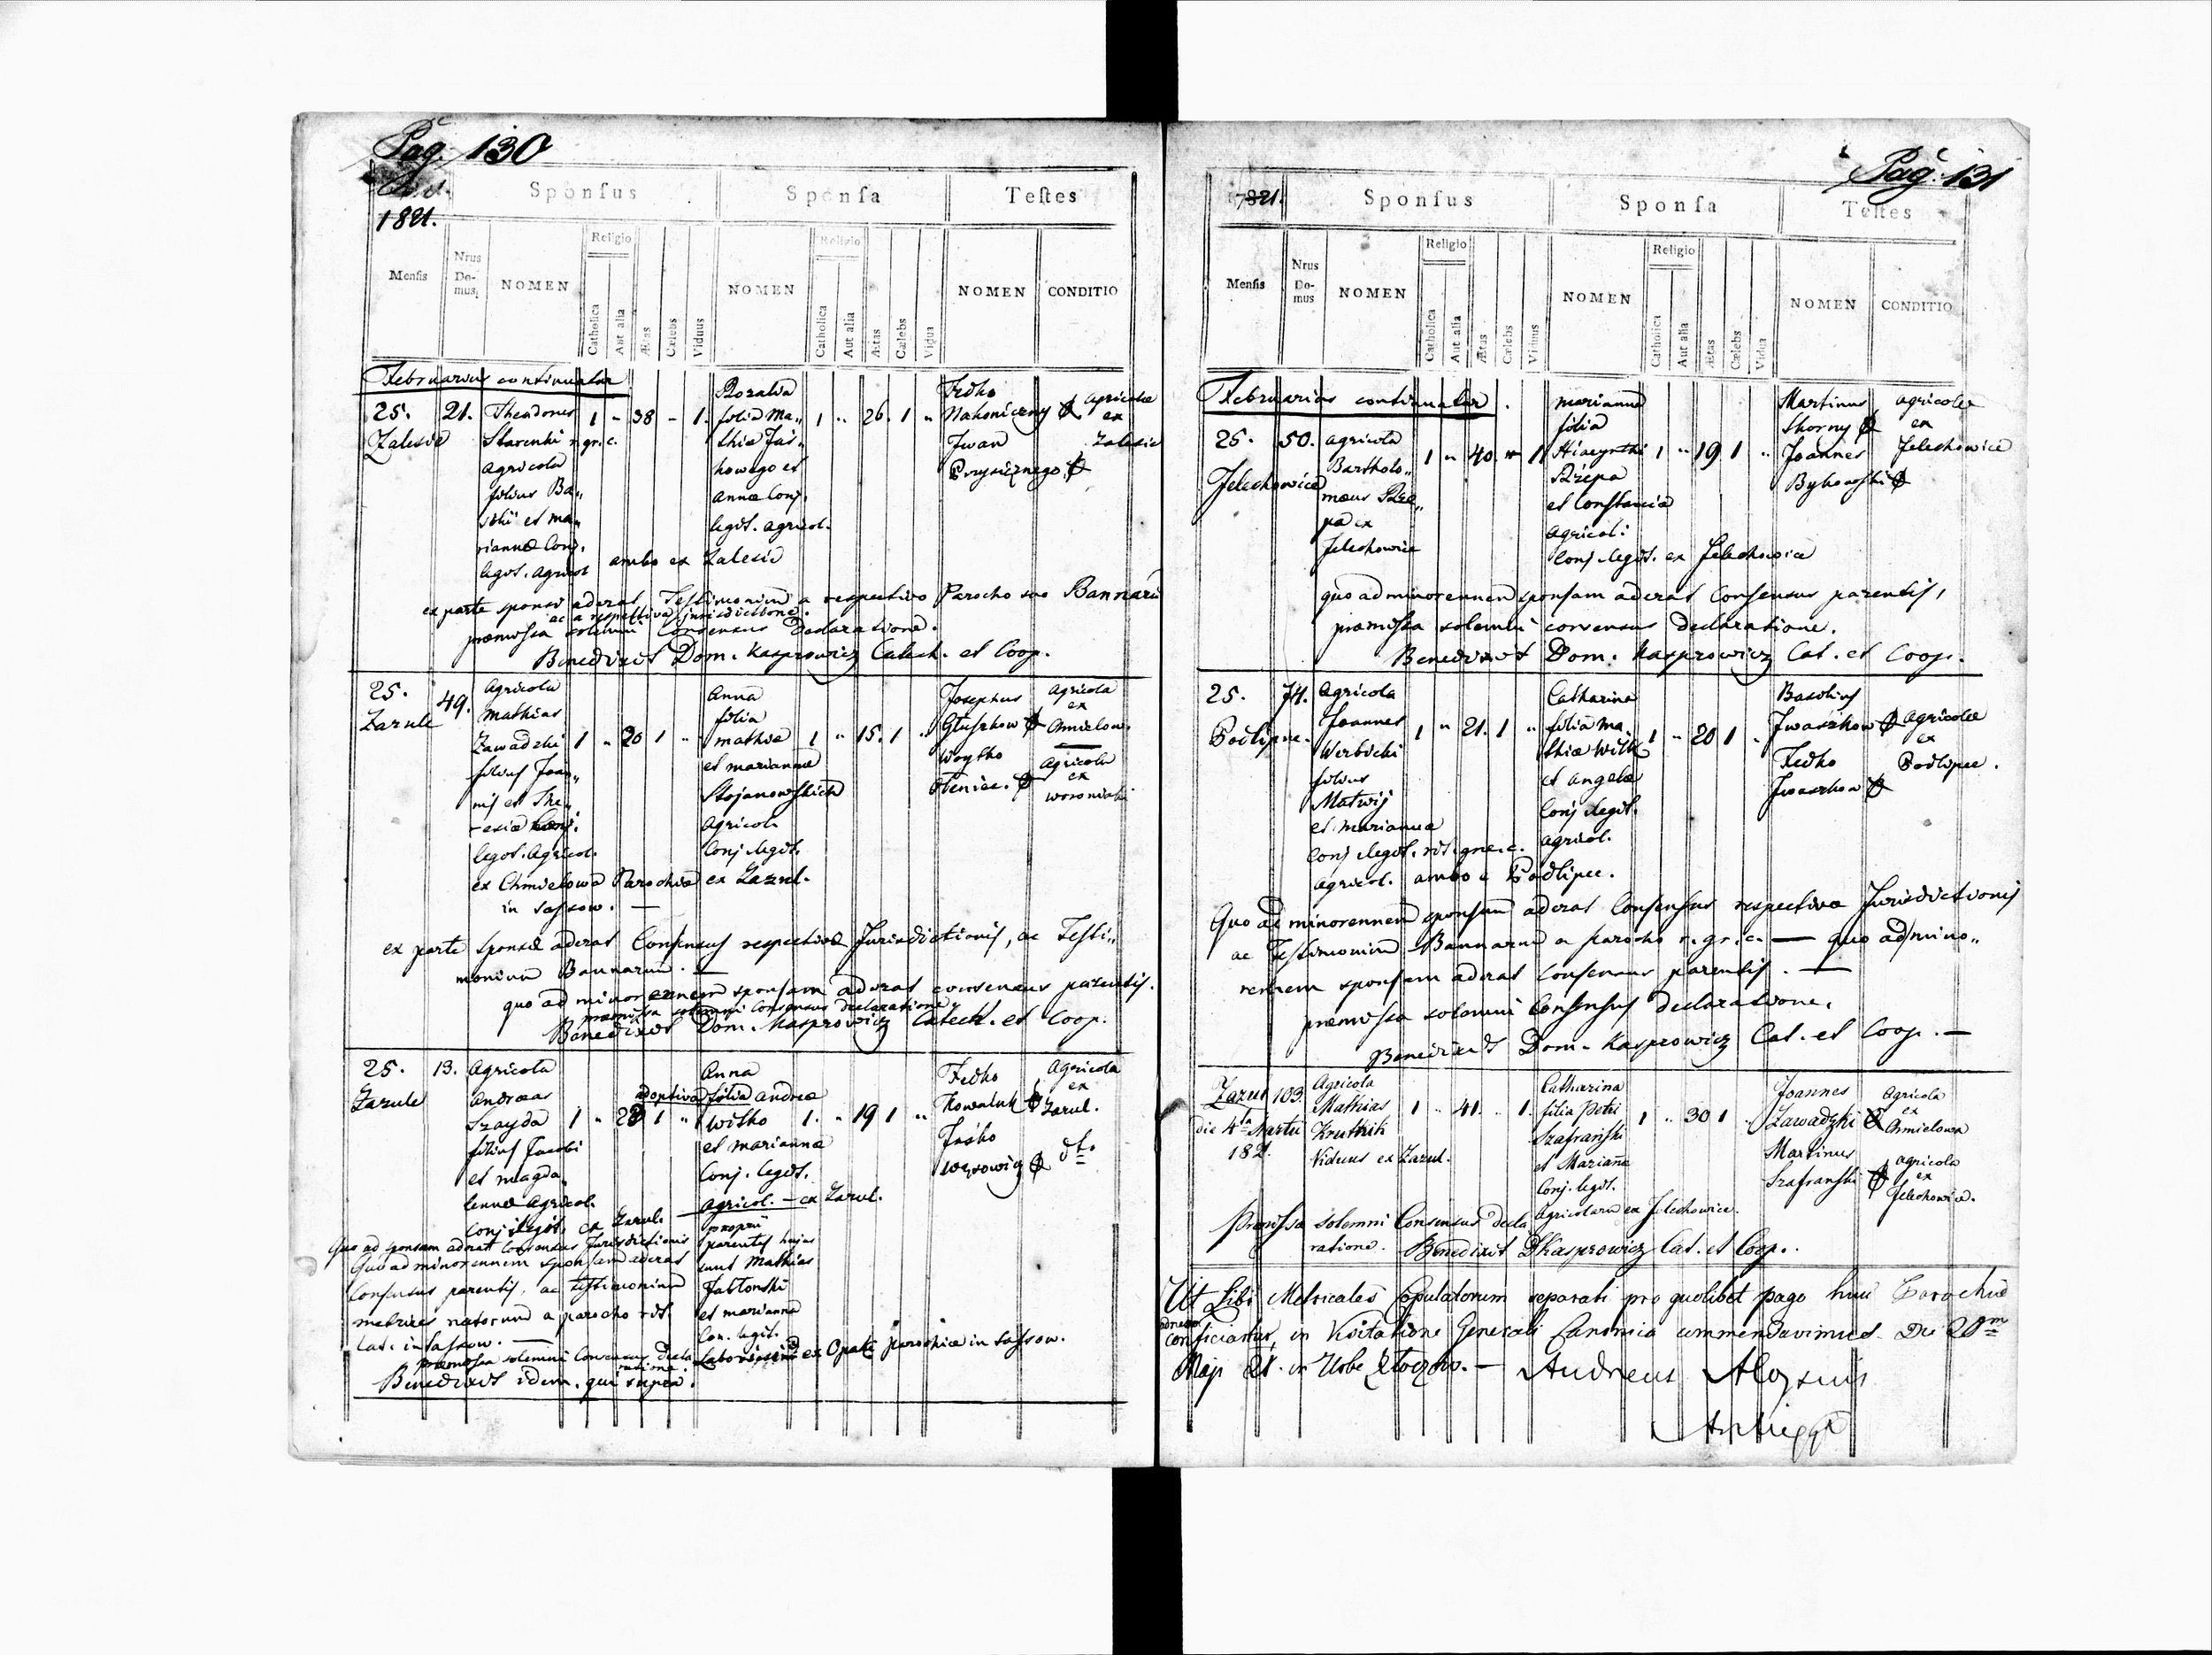 Pag. 130
1821.
Sponsus Sponsa Testes
Mensis
Nrus Domus
NOMEN
Religio
Catholica
Aut alia
Ætas
Cælebs
Viduus
NOMEN
Religio
Catholica
Aut alia
Ætas
Cælebs
Vidua
NOMEN
CONDITIO
Februarius continuatur
25.
Zalesie
21.
Theodorus
Starenki r. gr. c.
agricola
filius Ba„
silii et Ma„
riannæ Conj.
legit. agricol
1 „ 38 „ 1.
Rozalia
filia Ma„
thiæ Jas„
kowego et
annæ Conj.
legit. agricol.
ambo ex Zalesie
1 „ 26. 1 „
Fedko
Nakoniczny
Iwan
Przysiężnego
agricolæ
ex
Zalesie
ex parte sponsi aderat Testimonium a respectivo Parocho suo Bannarum
ac a respectiva jurisdictione.
præmissa solemni Consensus Declaratione.
Benedixit Dom. Kasprowicz Catech. et Coop.
25.
Zarule
49.
Agricola
Mathias
Zawadzki
filius Joan„
nis et The„
resiæ Conj.
legit. Agricol.
ex Chmielowa Parochiæ
in Sassow. —
1 „ 20 1 „
Anna
filia
Mathiæ
et Mariannæ
Stojanowskich
Agricol.
Conj. legit.
ex Zarul.
1 „ 15. 1 „
Josephus
Gluszkow
Woytko
Oleniec.
Agricola
ex
Chmielow.
Agricola
ex
Woroniaki
ex parte sponsi aderat Consensus respectivæ Jurisdictionis, ac Testi„
monium Bannarum. —
quo ad minorennem sponsam aderat consensus parentis.
præmissa solemni Consensus declaratione
Benedixit Dom. Kasprowicz Catech. et Coop.
25.
Zarule
13.
Agricola
Andreas
Szayda
filius Jacobi
et Magda„
lennæ Agricol.
Conj. legit. ex Zarul.
1 „ 28 1 „
Anna
adoptiva filia Andreæ
Witko
et Marianna
Conj. legit.
Agricol. — ex Zarul.
proprii
parentes hujus
sunt Mathias
Jablonski
et Marianna
Con. legit.
ex Opaki parochiæ in Sassow.
1. „ 19 1 „
Fedko
Kowaluk
Jaśko
Węsowicz
Agricola
ex
Zarul.
dt.
Quo ad sponsam aderat Consensus Jurisdictionis
Quo ad minorennem sponsam aderat
Consensus parentis, ac testimonium
metrices natorum a parocho rit.
lat. in Sassow. —
præmissa solemni Consensus decla
ratione.
Benedixit idem. qui supra.
Pag. 131
1821.
Sponsus Sponsa Testes
Mensis
Nrus Domus
NOMEN
Religio
Catholica
Aut alia
Ætas
Cælebs
Viduus
NOMEN
Religio
Catholica
Aut alia
Ætas
Cælebs
Vidua
NOMEN
CONDITIO
Februarius continuatur.
25.
Jelechowice
50.
agricola
Bartholo„
mæus Rze„
pa ex
Jelechowice
1 „ 40. „ 1
Marianna
filia
Hiacynthi
Rzepa
et Constancia
agricol:
Conj. legit. ex Jelechowice
1 „ 19 1 „
Martinus
Skorny
Joannes
Bykowski
agricolæ
ex
Jelechowice
quo ad minorennem sponsam aderat Consensus parentis,
præmissa solemni consensus declaratione.
Benedixit Dom. Kasprowicz Cat. et Coop.
25.
Podlipce.
74.
Agricola
Joannes
Werbicki
filius
Matwij
et Marianna
Conj. legit. rit. gr. c.
agricol.
1 „ 21. 1 „
Catharina
filia Ma„
thiæ Wilk
et Angelæ
Conj. legit.
agricol.
ambo e Podlipce.
1 „ 20 1 „
Basilius
Iwaszkow
Fedko
Iwaszkow
Agricolæ
ex
Podlipce.
Quo ad minorennem sponsum aderat Consensus respectivæ Jurisdictionis
ac Testimonium Bannarum a parocho r. gr. c. — quo ad mino„
rennem sponsam aderat consensus parentis. —
præmissa solemni Consensus declaratione.
Benedixit Dom. Kasprowicz Cat. et Coop. —
Zarul
die 4ta Martii
182
103.
Agricola
Mathias
Krutkik
Viduus ex Zarul.
1 „ 41. „ 1.
Catharina
filia Petri
Szafrański
et Mariana
Conj. legit.
Agricolarum ex Jelechowice.
1 „ 30 1 „
Joannes
Zawadzki
Martinus
Szafranski
Agricola
ex
Chmielowa
agricola
ex
Jelechowice.
Præmissa solemni Consensus decla
ratione. Benedixit D Kasprowicz Cat. et Coop..
Ut Libri Metricales Copulatorum separati pro quolibet pago huius Parochiæ
conficiantur, in Visitatione Generali Canonica commendavimus. Die 20m
Maji 821. in Urbe Złoczów. — Andreas Aloysius